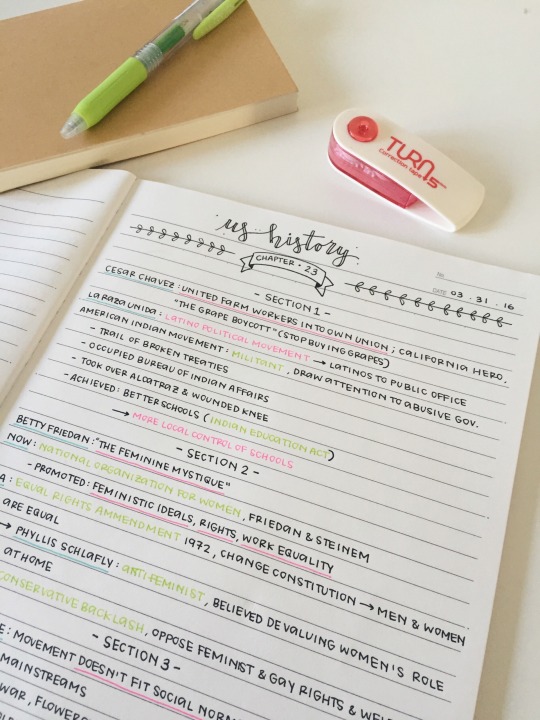 TURNS
Correction tape
us history
CHAPTER • 23
No.
DATE 03 • 31 • 16
- SECTION 1 -
CESAR CHAVEZ : UNITED FARM WORKERS INTO OWN UNION ; CALIFORNIA HERO,
"THE GRAPE BOYCOTT" (STOP BUYING GRAPES)
LA RAZA UNIDA : LATINO POLITICAL MOVEMENT → LATINOS TO PUBLIC OFFICE
AMERICAN INDIAN MOVEMENT : MILITANT , DRAW ATTENTION TO ABUSIVE GOV.
- TRAIL OF BROKEN TREATIES
- OCCUPIED BUREAU OF INDIAN AFFAIRS
- TOOK OVER ALCATRAZ & WOUNDED KNEE
- ACHIEVED : BETTER SCHOOLS (INDIAN EDUCATION ACT)
→ MORE LOCAL CONTROL OF SCHOOLS
- SECTION 2 -
BETTY FRIEDAN : "THE FEMININE MYSTIQUE"
NOW : NATIONAL ORGANIZATION FOR WOMEN , FRIEDAN & STEINEM
- PROMOTED : FEMINISTIC IDEALS, RIGHTS, WORK EQUALITY
A : EQUAL RIGHTS AMMENDMENT 1972, CHANGE CONSTITUTION → MEN & WOMEN
ARE EQUAL
→ PHYLLIS SCHLAFLY : ANTIFEMINIST, BELIEVED DEVALUING WOMEN'S ROLE
AT HOME
CONSERVATIVE BACKLASH, OPPOSE FEMINIST & GAY RIGHTS & WEL
- SECTION 3 -
E : MOVEMENT DOESN'T FIT SOCIAL NORM
MAINSTREAMS
WAR, FLOWER